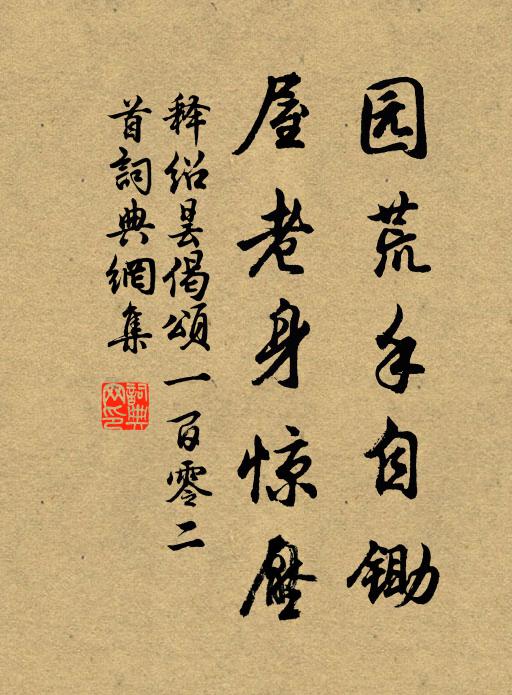 园荒手自锄
屋老身惊压
释绍昙偈颂一百零二
首詞典網集
詞典
网印